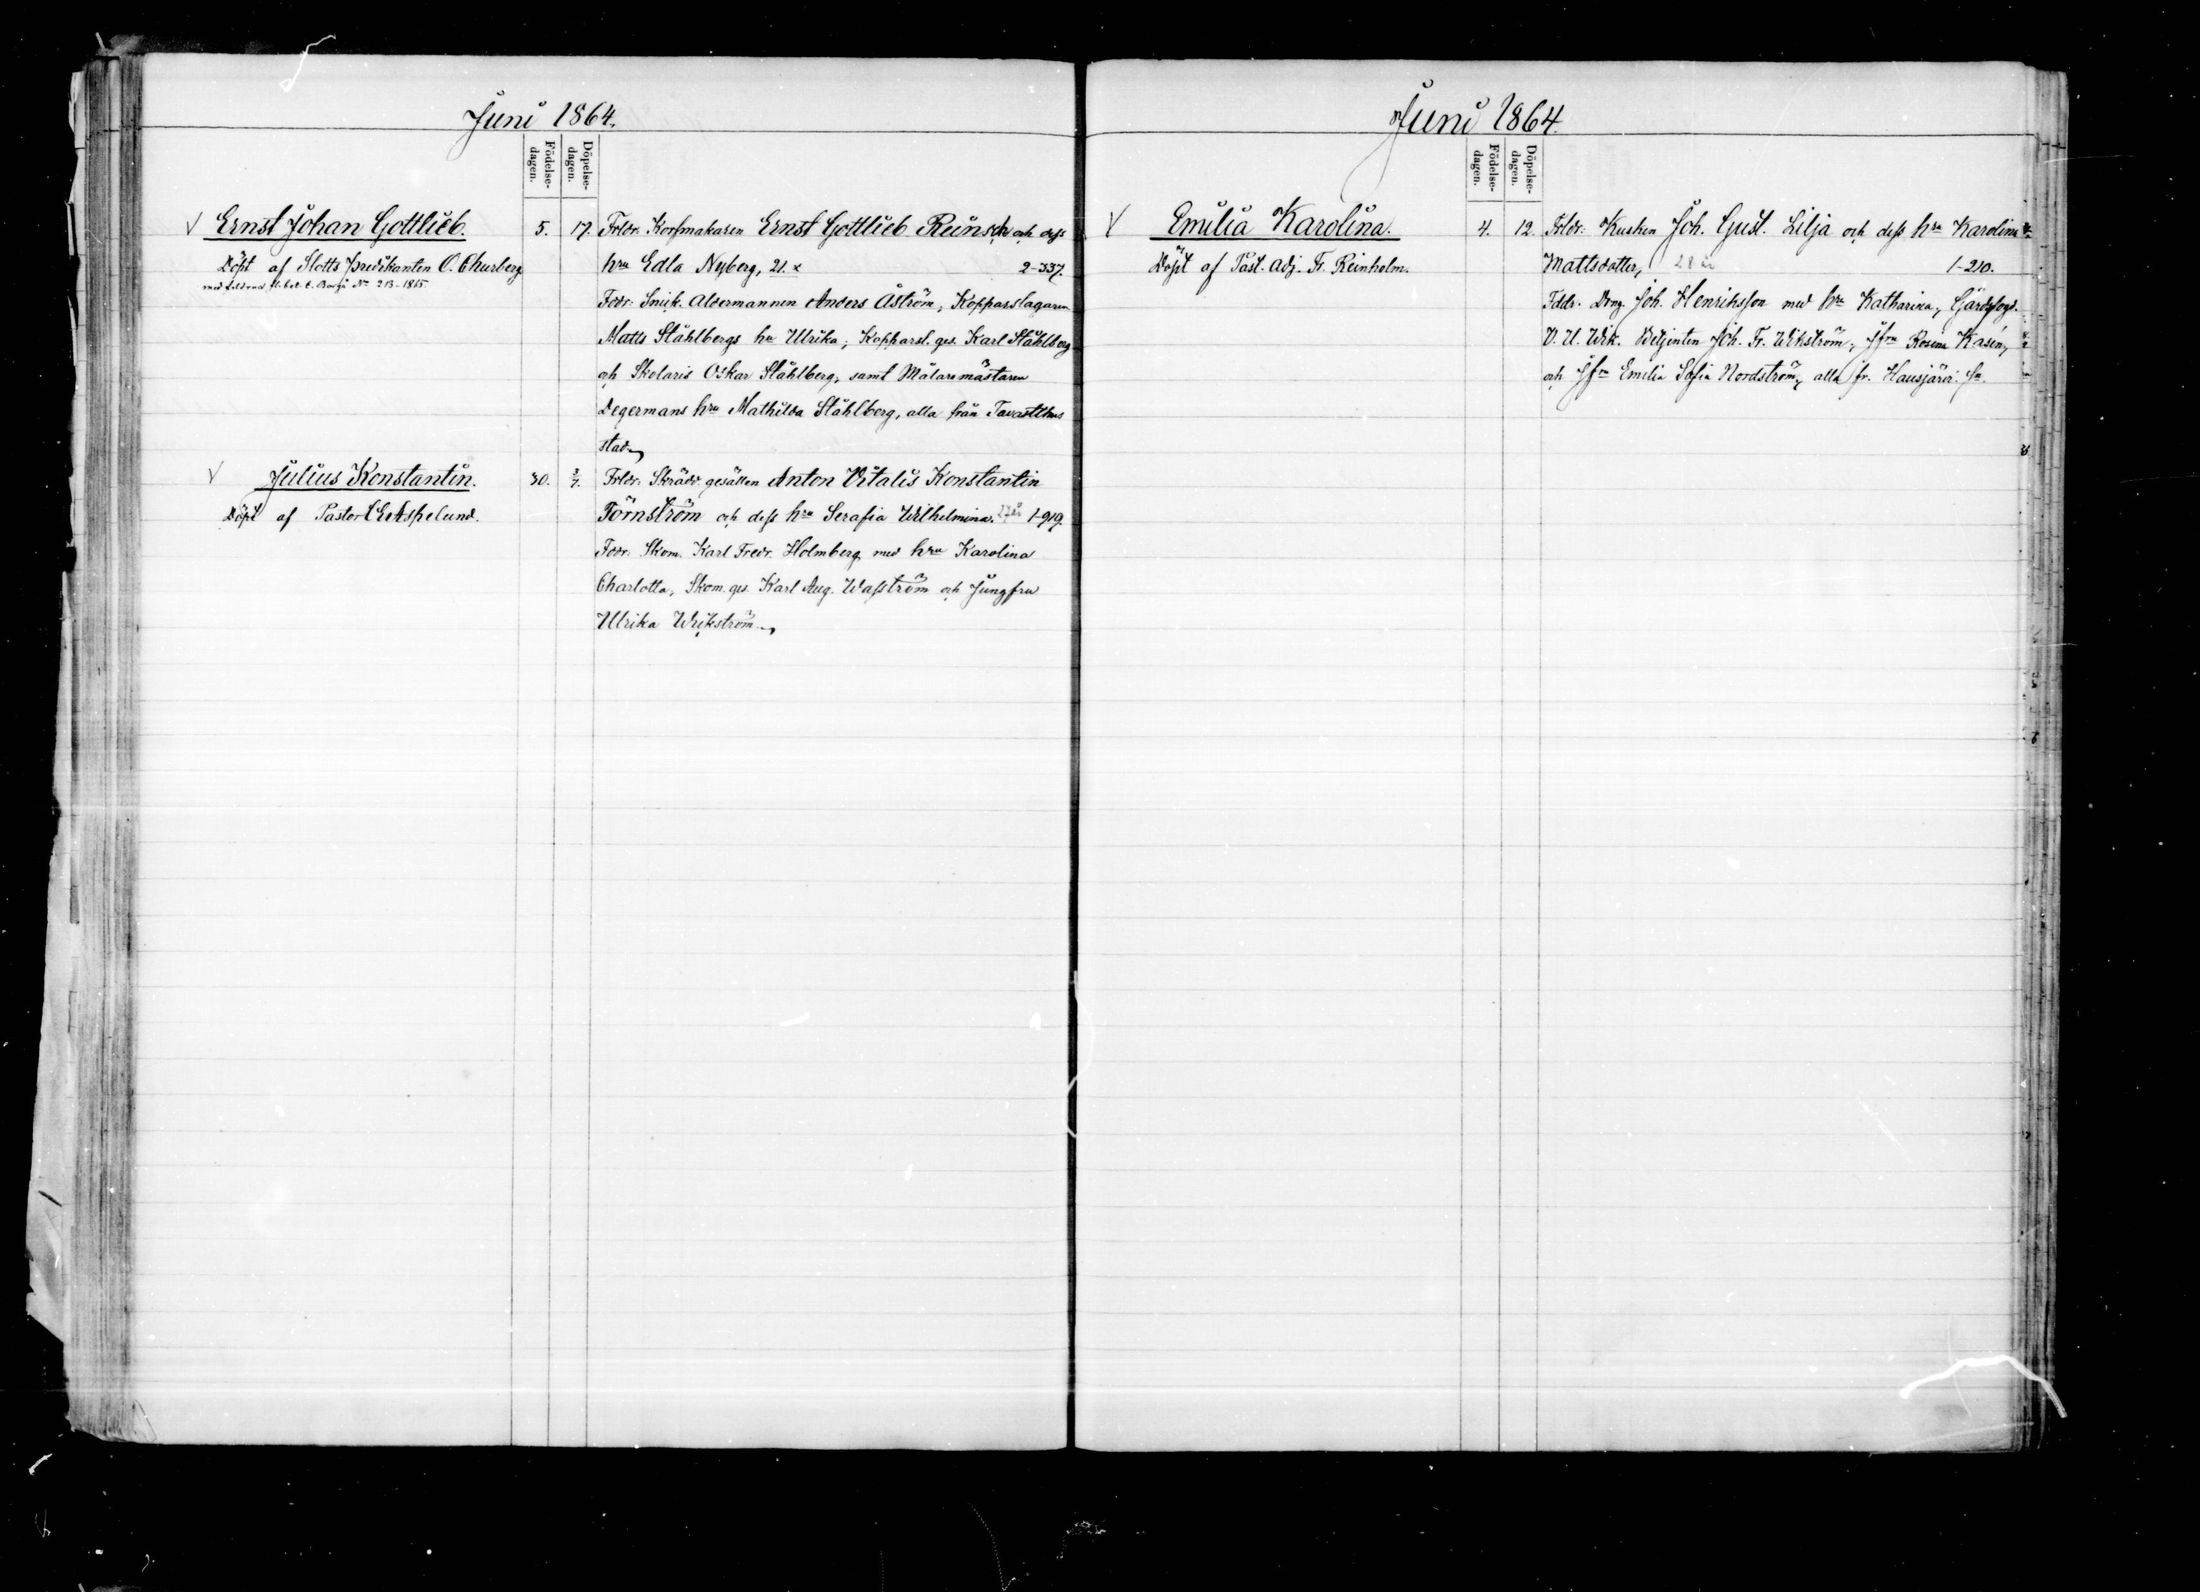 Juni 1864.
Födelse-
dagen.
Döpelse-
dagen.
√ Ernst Johan Gottlieb. 5. 17. Frldr. Korfmakaren Ernst Gottlieb Reinsch och dess
Döpt af Slotts predikanten C. Churberg hru Edla Nyberg, 21. x 2-337.
N° 213-1865
Fddr: Snick. Aldermannen Anders Åström, Kopparslagaren
Matts Ståhlbergs hu Ulrika, Kopparsl. ges. Karl Ståhlberg
och Skolaris Oskar Ståhlberg, samt Målaremästaren
Degermans hru Mathilda Ståhlberg, alla från Tavastehus
stad.
√ Julius Konstantin. 30. 3/7. Frldr. Skrädd gesällen Anton Vitalis Konstantin
Döpt af Pastor Aspelund. Törnström och dess hru Serafia Wilhelmina. 27 år 1-919.
Fddr. Skom. Karl Fredr. Holmberg med hru Karolina
Charlotta, Skom. ges. Karl Aug. Wasström och Jungfru
Ulrika Wickström.
Juni 1864.
Födelse-
dagen.
Döpelse-
dagen.
√ Emilia Karolina. 4. 12. Frldr: Kusken Joh. Gust. Lilja och dess hru Karolina
Döpt af Past. Adj. Fr. Reinholm. Mattsdotter, 28 år 1-210.
Fddr. Dräng. Joh. Henriksson med hru Katharina, Gårdsfogd.
V. U. Wik. Betjenten Joh. Fr. Wikström, Jfru Rosina Kasén,
och Jfru Emilia Sofia Nordström, alla fr. Hausjärvi. sn.